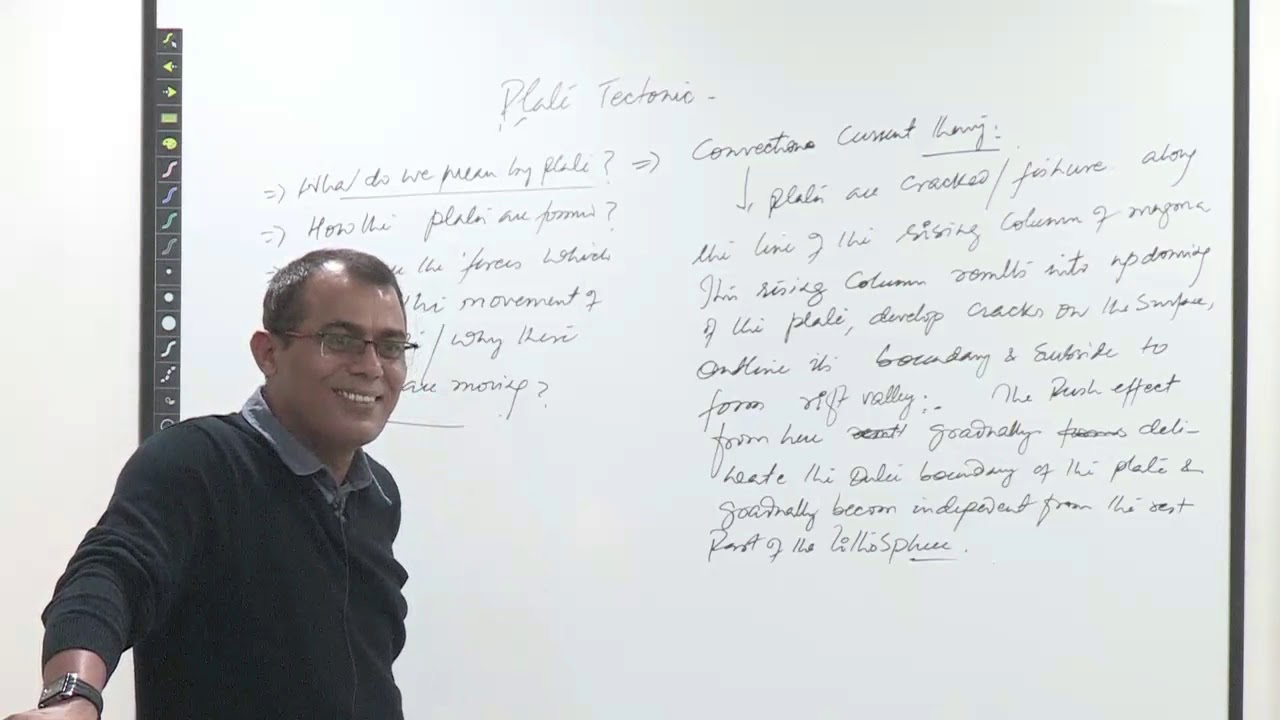 Plate Tectonic -
=> What do we mean by plate?
=> How the plates are formed?
the forces which
the movement of
/ why there
are moving?
=> Convection Current theory:
↓ plates are cracked/fishure along
the line of the rising column of magma
This rising column results into updoming
of the plate, develop cracks on the surface,
outline its boundary & subside to
form rift valley:. The Push effect
from here gradually deli-
neate the outer boundary of the plate &
gradually becom independent from the rest
Part of the lithosphere.